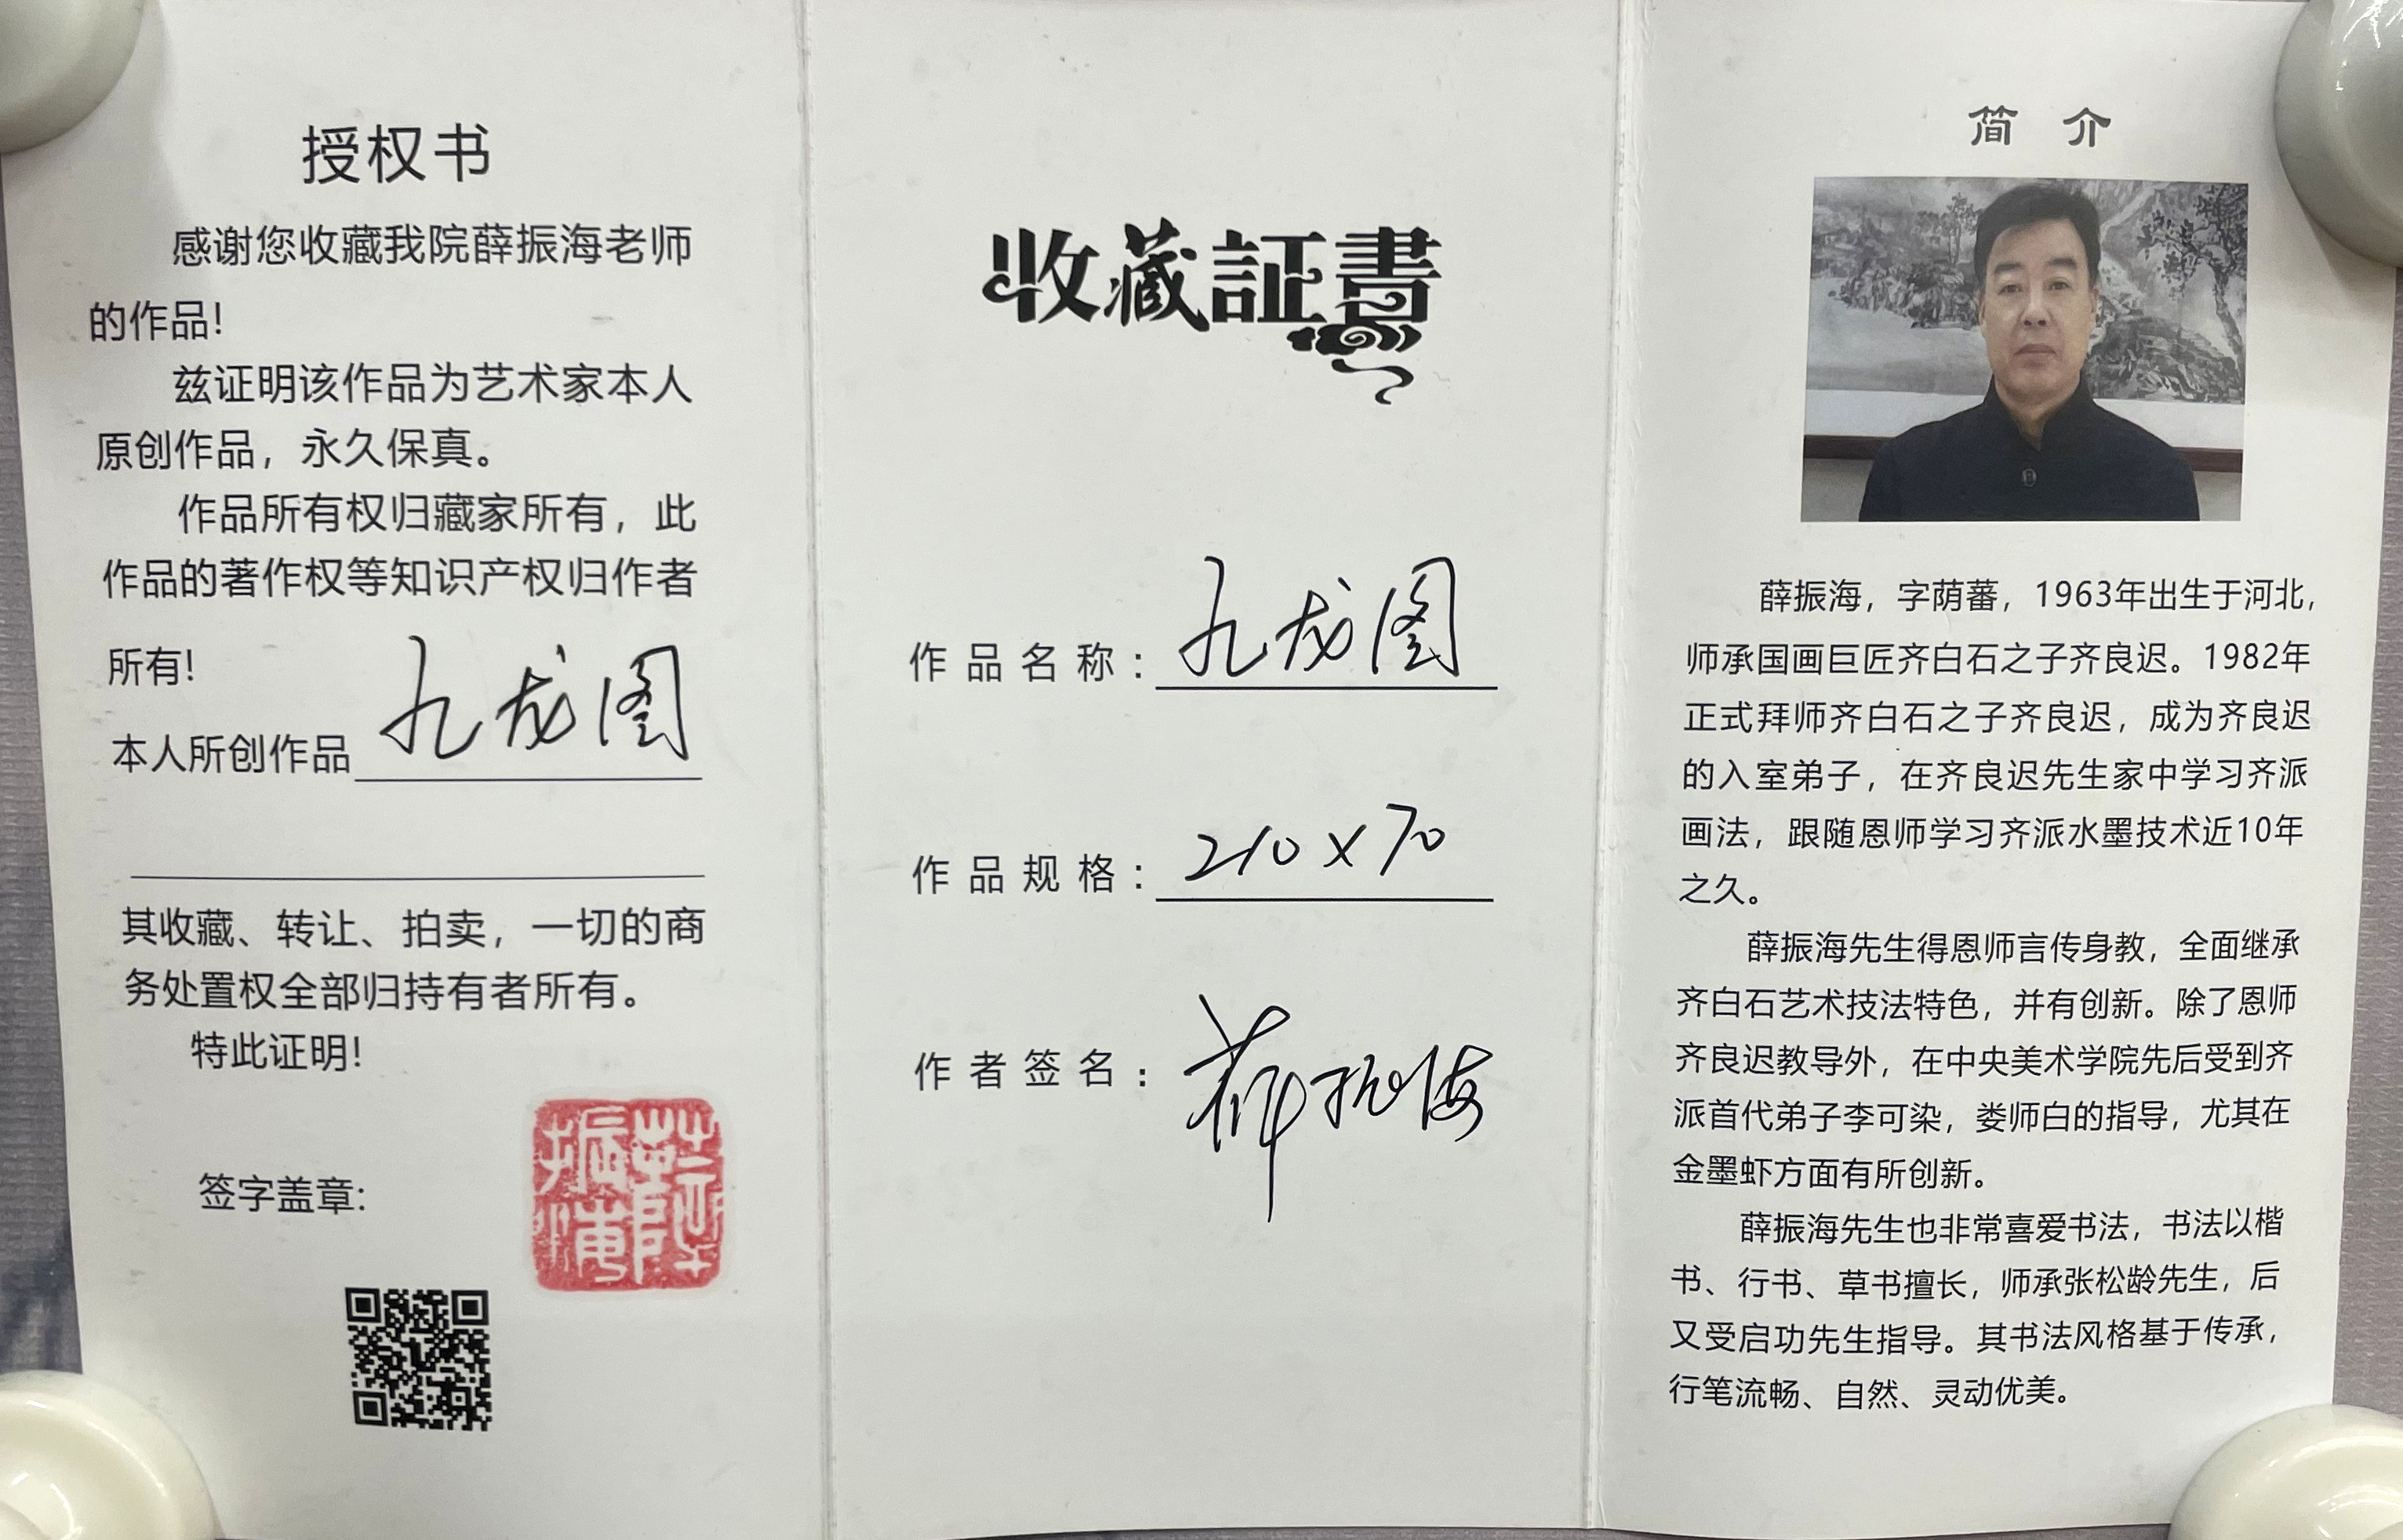 授权书
感谢您收藏我院薛振海老师
的作品!
兹证明该作品为艺术家本人
原创作品，永久保真。
作品所有权归藏家所有，此
作品的著作权等知识产权归作者
所有!
本人所创作品 九龙图
其收藏、转让、拍卖，一切的商
务处置权全部归持有者所有。
特此证明!
签字盖章:
收藏証書
作品名称: 九龙图
作品规格: 210×70
作者签名: 薛振海
简 介
薛振海，字荫蕃，1963年出生于河北,
师承国画巨匠齐白石之子齐良迟。1982年
正式拜师齐白石之子齐良迟，成为齐良迟
的入室弟子，在齐良迟先生家中学习齐派
画法，跟随恩师学习齐派水墨技术近10年
之久。
薛振海先生得恩师言传身教，全面继承
齐白石艺术技法特色，并有创新。除了恩师
齐良迟教导外，在中央美术学院先后受到齐
派首代弟子李可染，娄师白的指导，尤其在
金墨虾方面有所创新。
薛振海先生也非常喜爱书法，书法以楷
书、行书、草书擅长，师承张松龄先生，后
又受启功先生指导。其书法风格基于传承，
行笔流畅、自然、灵动优美。